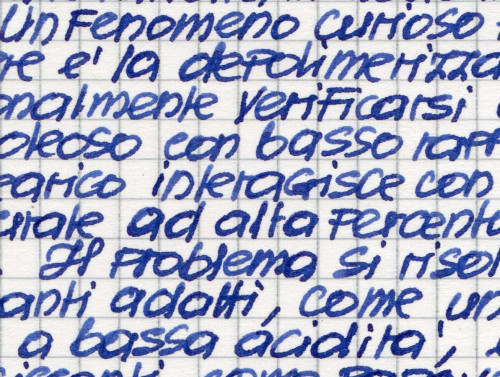 Un fenomeno curioso
re e' la depolimerizza
onalmente verificarsi
oleoso con basso rapp
earico interagisce con
urate ad alta percent
. Il problema si risol
anti adatti, come un
a bassa acidità,